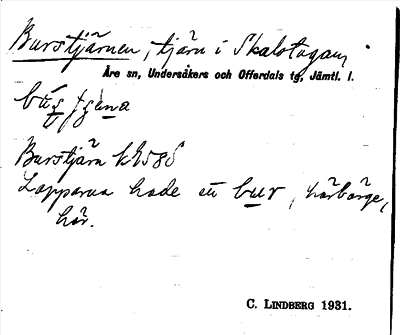 Burstjärnen, tjärn i Skalstugan,
Åre sn, Undersåkers och Offerdals tg, Jämtl. l.
Burstjärn
Lapparna hade en bur, härbärge,
här.
C. LINDBERG 1931.